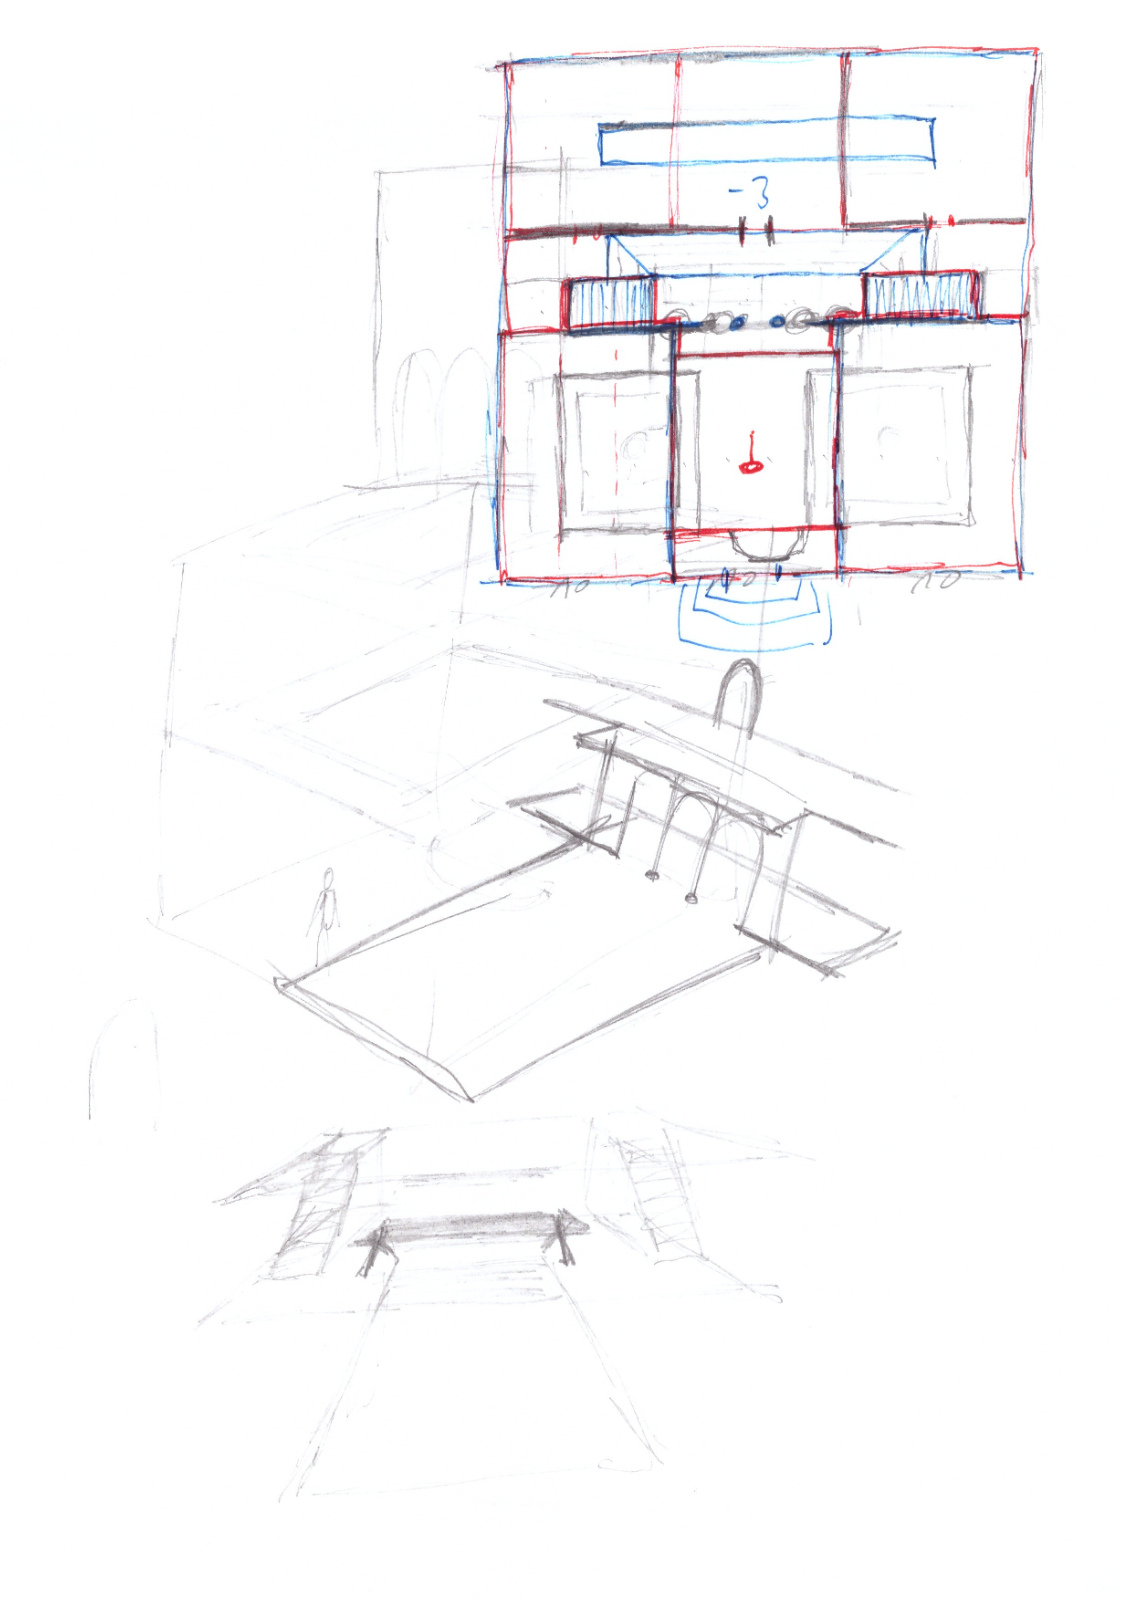 -3
10
10
10